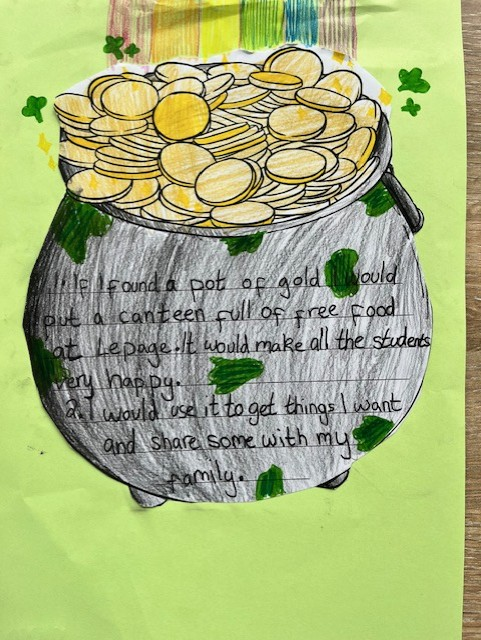 1. If I found a pot of gold I would
put a canteen full of free food
at Lepage. It would make all the students
very happy.
2. I would use it to get things I want
and share some with my
family.